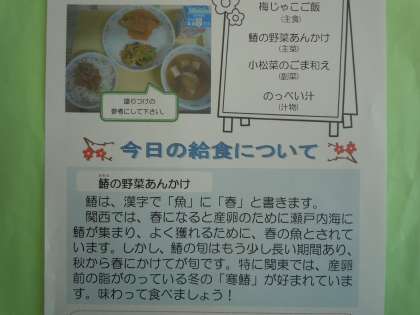 梅じゃこご飯
(主食)
鰆の野菜あんかけ
(主菜)
小松菜のごま和え
(副菜)
のっぺい汁
(汁物)
盛りつけの
参考にして下さい。
今日の給食について
鰆の野菜あんかけ
鰆は、漢字で「魚」に「春」と書きます。
関西では、春になると産卵のために瀬戸内海に
鰆が集まり、よく獲れるために、春の魚とされ
ています。しかし、鰆の旬はもう少し長い期間あり、
秋から春にかけてが旬です。特に関東では、産卵
前の脂がのっている冬の「寒鰆」が好まれていま
す。味わって食べましょう！